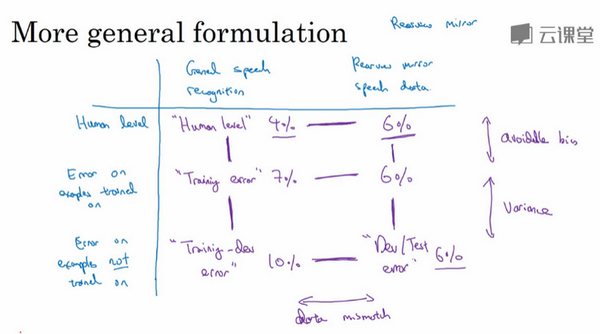 More general formulation
Rearview mirror
云课堂
General speech recognition
Rearview mirror speech data
Human level
"Human level" 4%
6%
avoidable bias
Error on examples trained on
"Training error" 7%
6%
Variance
Error on examples not trained on
"Training-dev error" 10%
"Dev/Test error" 6%
data mismatch